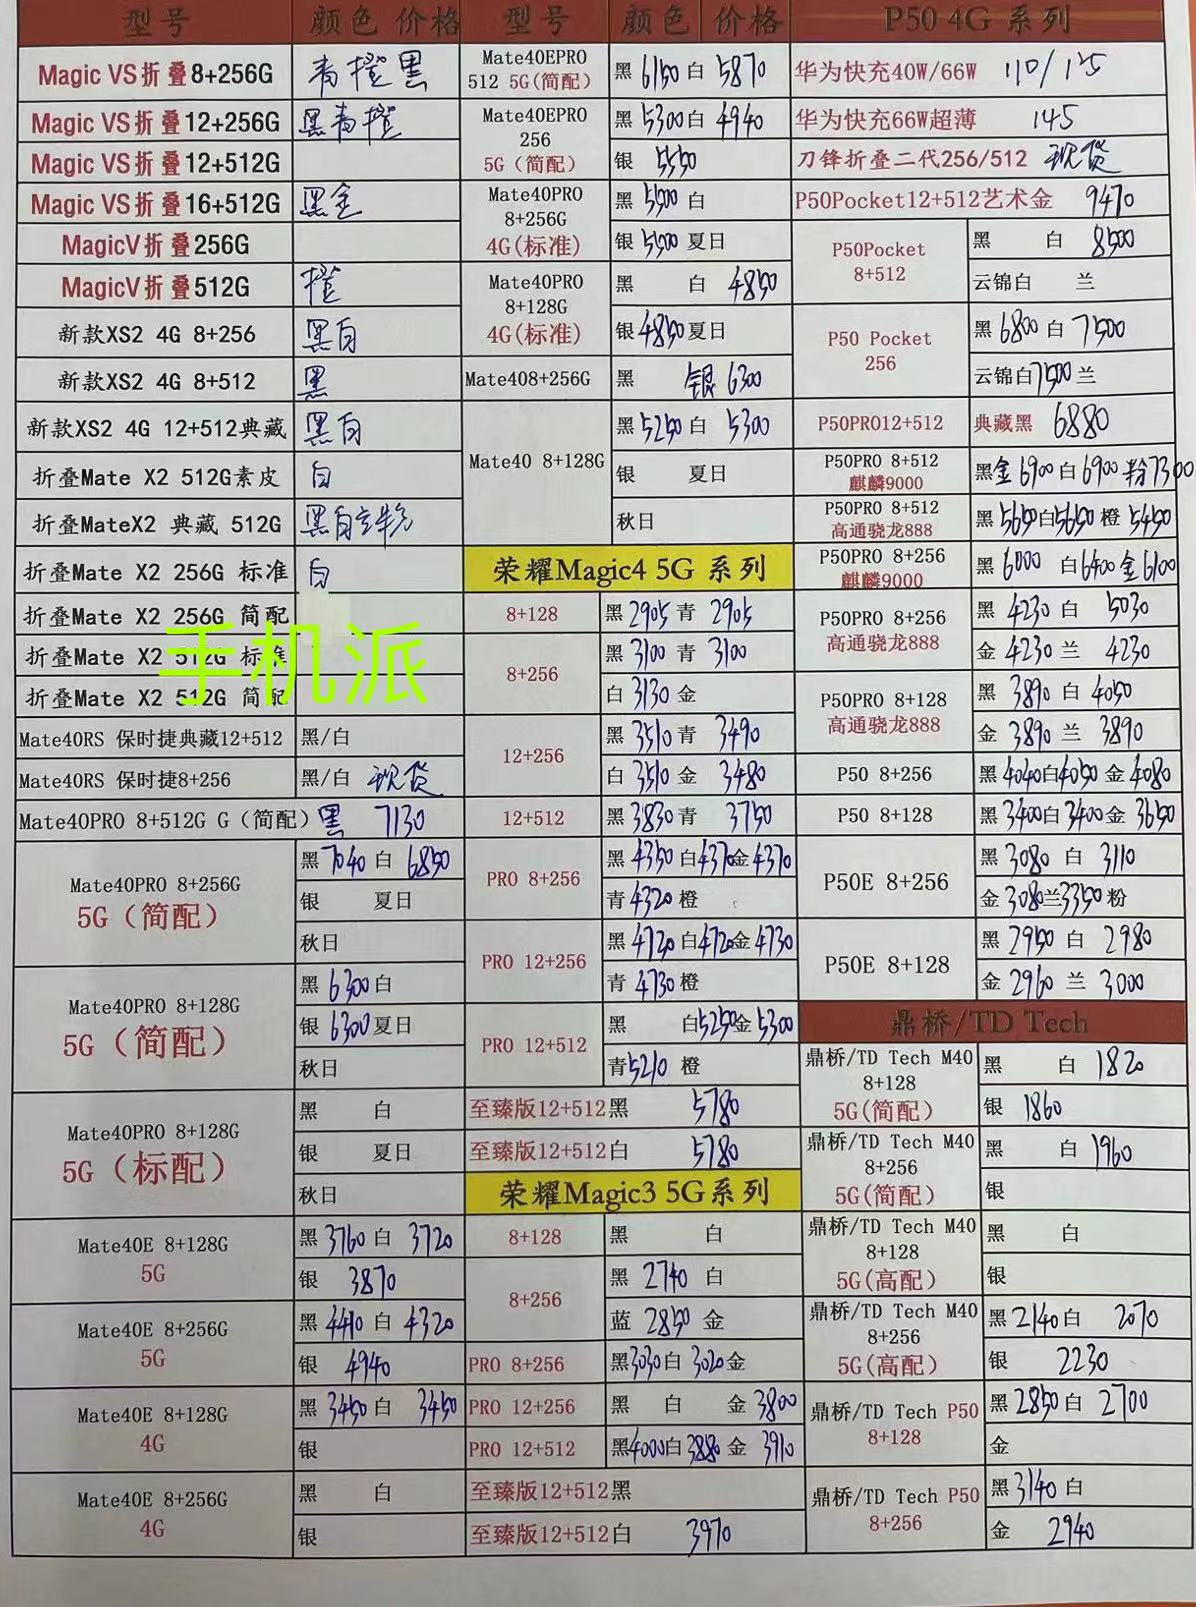 型号 颜色 价格
Magic VS折叠8+256G 青橙黑
Magic VS折叠12+256G 黑青橙
Magic VS折叠12+512G
Magic VS折叠16+512G 黑金
MagicV折叠256G
MagicV折叠512G 橙
新款XS2 4G 8+256 黑白
新款XS2 4G 8+512 黑
新款XS2 4G 12+512典藏 黑白
折叠Mate X2 512G素皮 白
折叠MateX2 典藏 512G 黑白
折叠Mate X2 256G 标准 白
折叠Mate X2 256G 简配
折叠Mate X2 512G 标准
折叠Mate X2 512G 简配
手机派
Mate40RS 保时捷典藏12+512 黑/白
Mate40RS 保时捷8+256 黑/白 现货
Mate40PRO 8+512G G（简配）黑 7130
Mate40PRO 8+256G
5G（简配）
黑 7040 白 6850
银 夏日
秋日
Mate40PRO 8+128G
5G（简配）
黑 6300 白
银 6300 夏日
秋日
Mate40PRO 8+128G
5G（标配）
黑 白
银 夏日
秋日
Mate40E 8+128G
5G
黑 3760 白 3720
银 3870
Mate40E 8+256G
5G
黑 4410 白 4320
银 4940
Mate40E 8+128G
4G
黑 3450 白 3450
银
Mate40E 8+256G
4G
黑 白
银
型号 颜色 价格
Mate40EPRO
512 5G(简配)
黑 6150 白 5870
Mate40EPRO
256
5G（简配）
黑 5300 白 4940
银 5550
Mate40PRO
8+256G
4G(标准)
黑 5500 白
银 5500 夏日
Mate40PRO
8+128G
4G(标准)
黑 白 4850
银 4850 夏日
Mate408+256G 黑 银 6300
Mate40 8+128G
黑 5250 白 5300
银 夏日
秋日
荣耀Magic4 5G 系列
8+128 黑 2905 青 2905
8+256
黑 3100 青 3100
白 3130 金
12+256
黑 3510 青 3490
白 3510 金 3480
12+512 黑 3830 青 3750
PRO 8+256
黑 4350 白 4370 金 4370
青 4320 橙
PRO 12+256
黑 4720 白 4720 金 4730
青 4730 橙
PRO 12+512
黑 白 5250 金 5300
青 5210 橙
至臻版12+512黑 5780
至臻版12+512白 5780
荣耀Magic3 5G系列
8+128 黑 白
8+256
黑 2740 白
蓝 2850 金
PRO 8+256 黑 3030 白 3020 金
PRO 12+256 黑 白 金 3800
PRO 12+512 黑 4000 白 3880 金 3910
至臻版12+512黑
至臻版12+512白 3970
P50 4G 系列
华为快充40W/66W 110/125
华为快充66W超薄 145
刀锋折叠二代256/512 现货
P50Pocket12+512艺术金 9470
P50Pocket
8+512
黑 白 8500
云锦白 兰
P50 Pocket
256
黑 6800 白 7500
云锦白 7500 兰
P50PRO12+512 典藏黑 6880
P50PRO 8+512
麒麟9000
黑金 6900 白 6900 粉 7300
P50PRO 8+512
高通骁龙888
黑 5650 白 5650 橙 5450
P50PRO 8+256
麒麟9000
黑 6000 白 6400 金 6100
P50PRO 8+256
高通骁龙888
黑 4230 白 5030
金 4230 兰 4230
P50PRO 8+128
高通骁龙888
黑 3890 白 4050
金 3890 兰 3890
P50 8+256 黑 4040 白 4050 金 4080
P50 8+128 黑 3400 白 3400 金 3650
P50E 8+256
黑 3080 白 3110
金 3080 兰 3350 粉
P50E 8+128
黑 2950 白 2980
金 2960 兰 3000
鼎桥/TD Tech
鼎桥/TD Tech M40
8+128
5G(简配)
黑 白 1820
银 1860
鼎桥/TD Tech M40
8+256
5G(简配)
黑 白 1960
银
鼎桥/TD Tech M40
8+128
5G(高配)
黑 白
银
鼎桥/TD Tech M40
8+256
5G(高配)
黑 2140 白 2070
银 2230
鼎桥/TD Tech P50
8+128
黑 2850 白 2700
金
鼎桥/TD Tech P50
8+256
黑 3140 白
金 2940